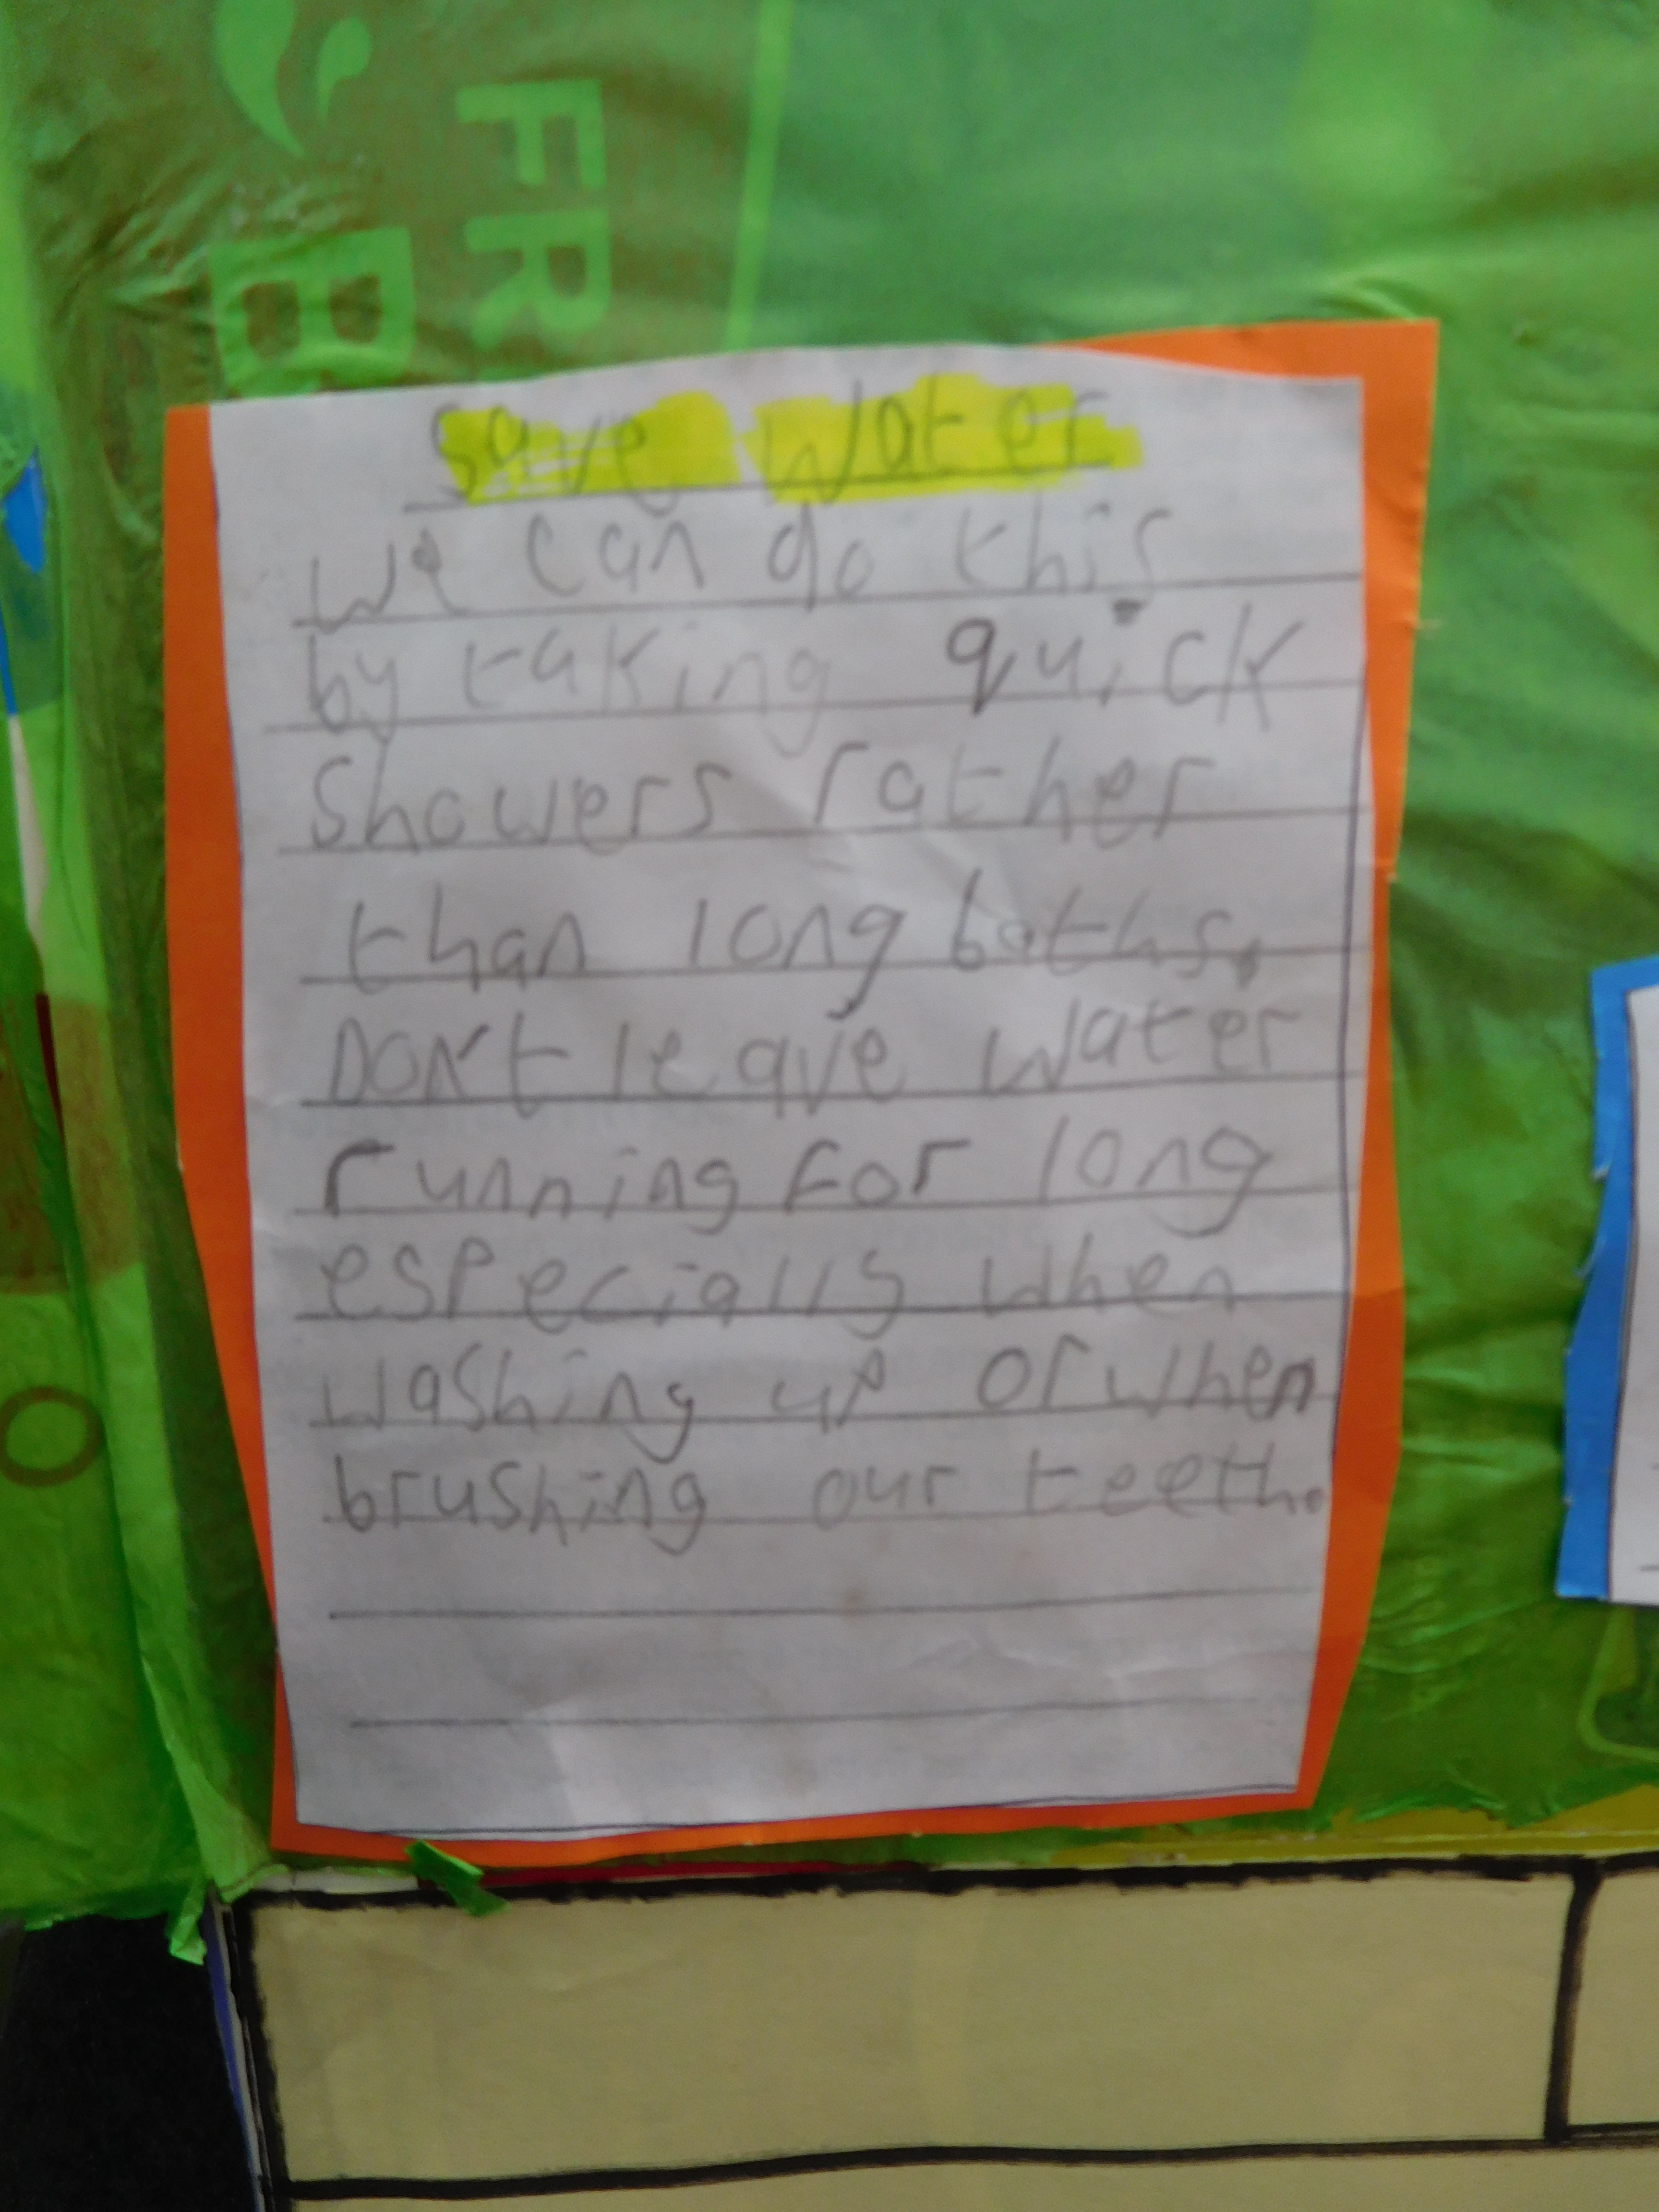 FR
B
Save Water
we can do this
by taking quick
Showers rather
than long baths.
Don't leave water
running for long
especially when
washing up or when
brushing our teeth.